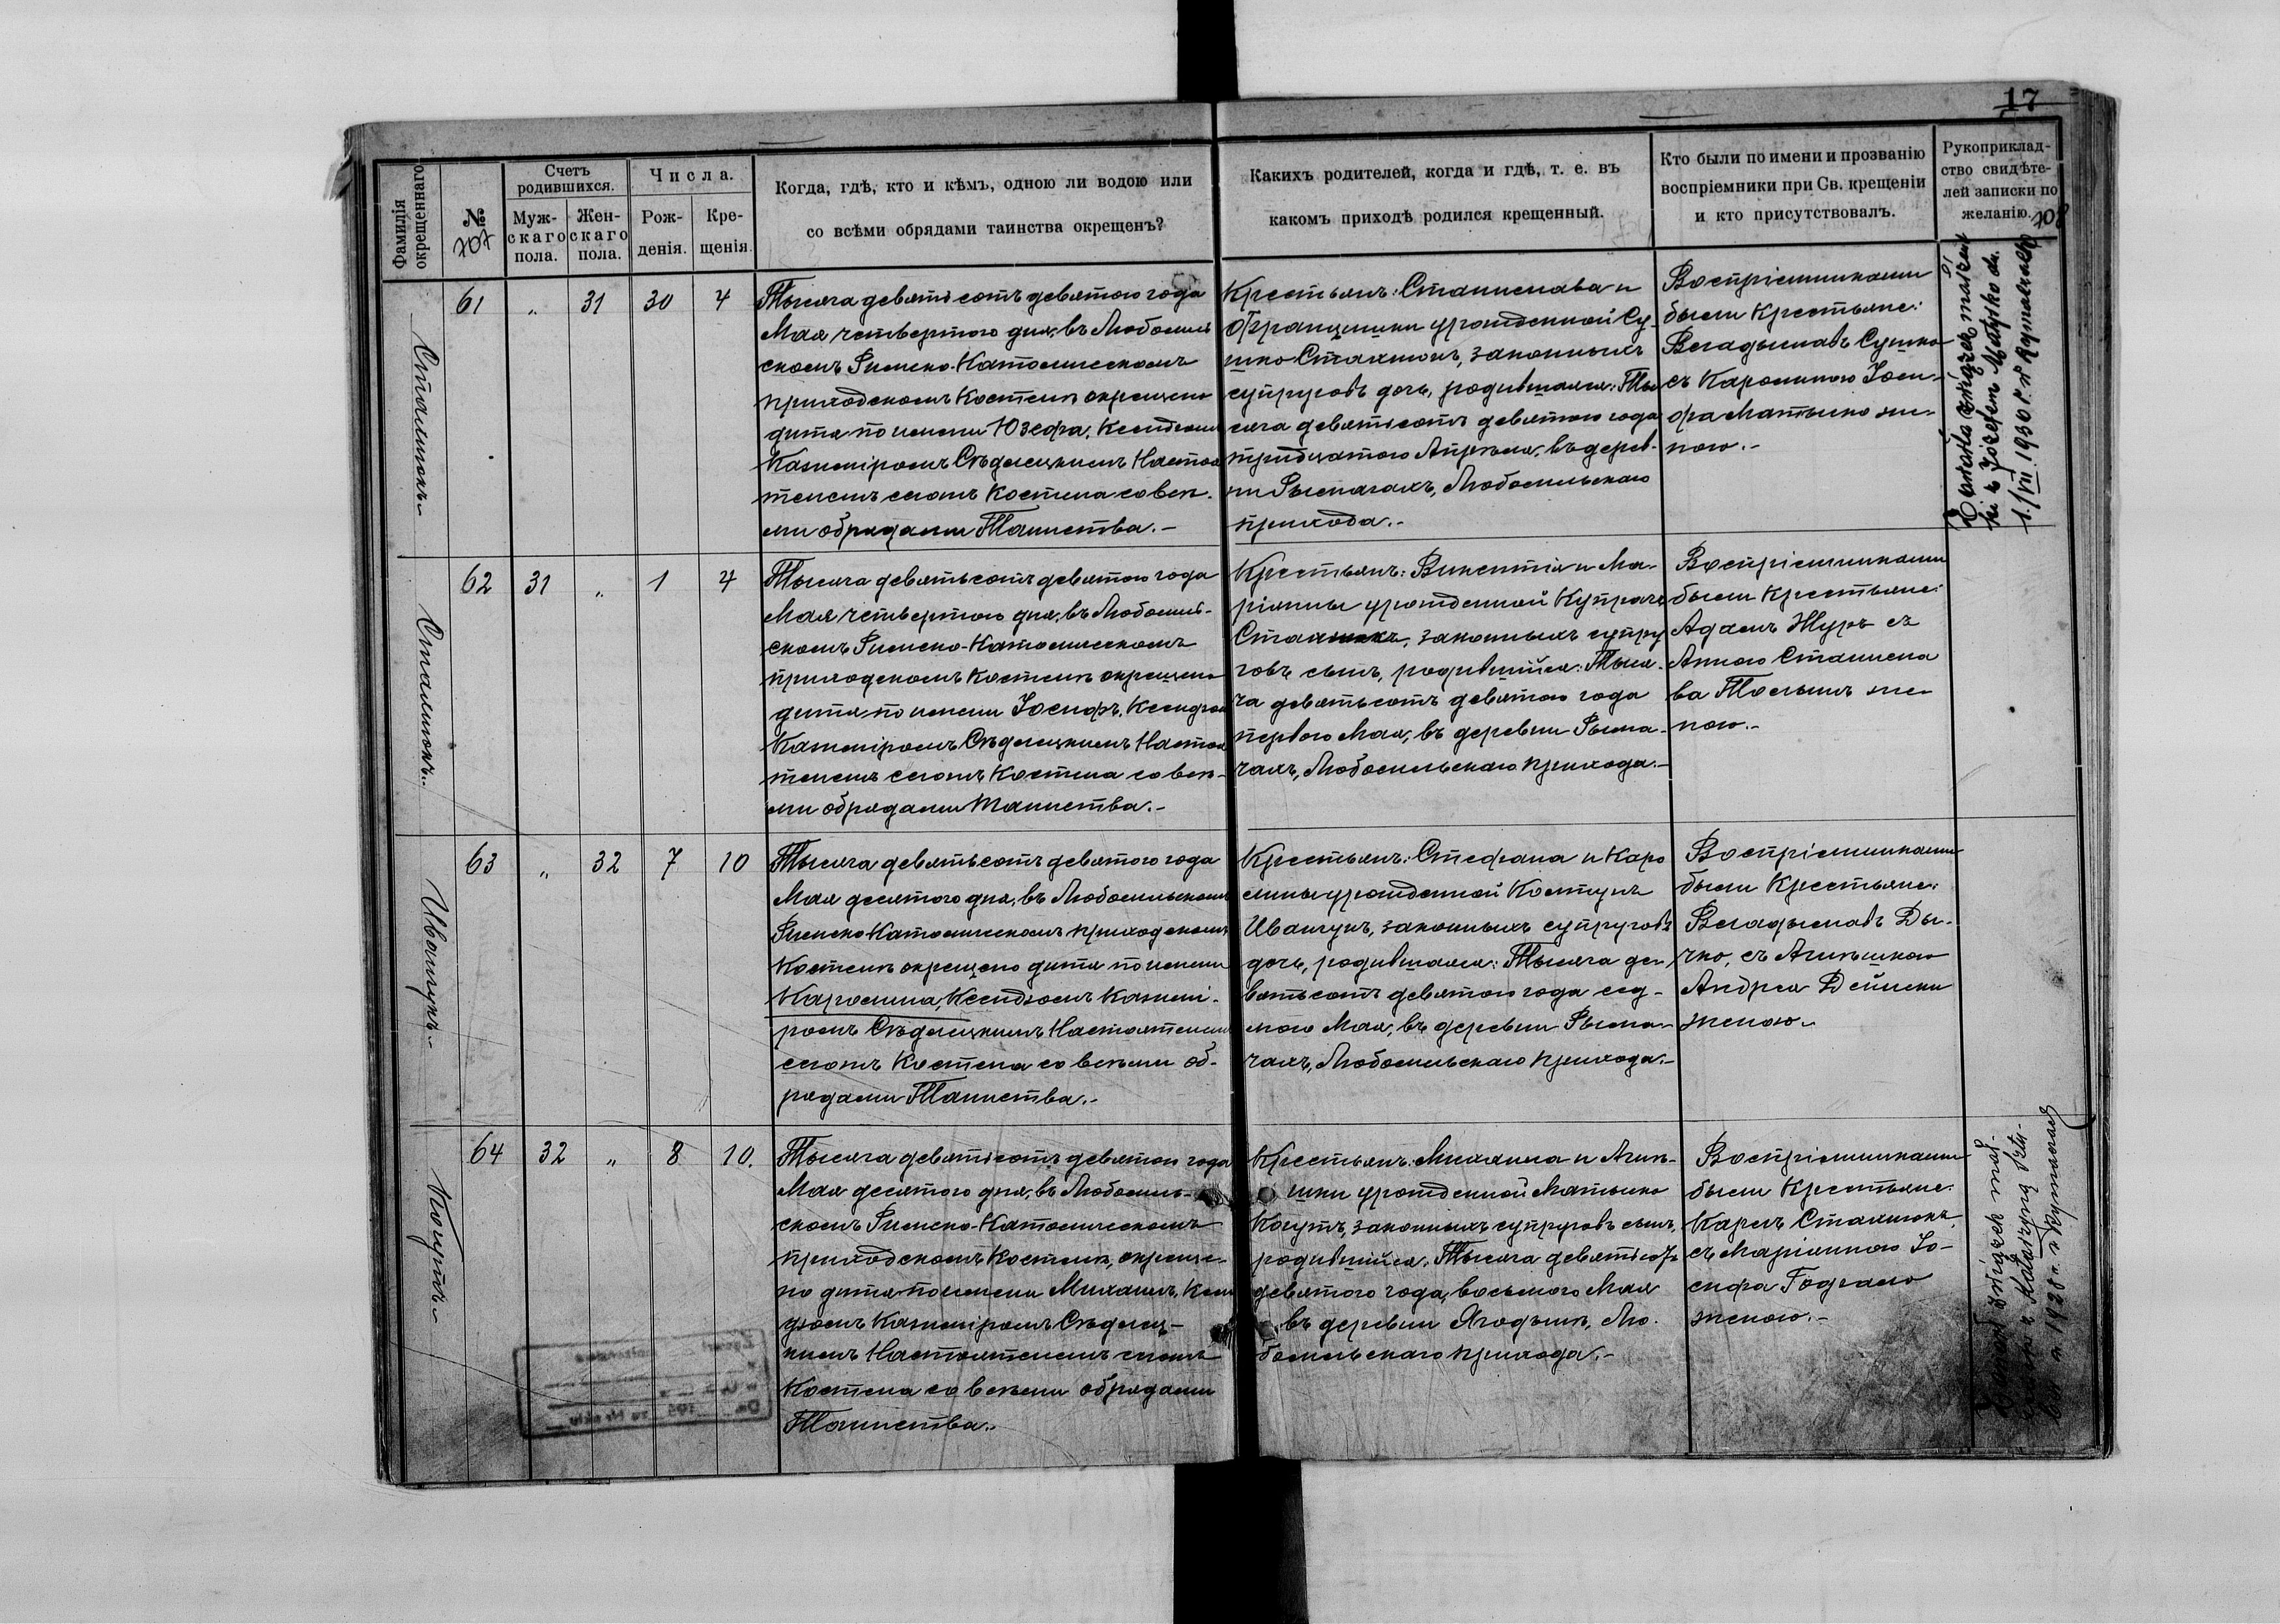 17
Фамилія
окрещеннаго
№
107
Счетъ
родившихся.
Муж-
скаго
пола.
Жен-
скаго
пола.
Числа.
Рож-
денія.
Кре-
щенія.
Когда, гдѣ, кто и кѣмъ, одною ли водою или
со всѣми обрядами таинства окрещенъ?
Какихъ родителей, когда и гдѣ, т. е. въ
какомъ приходѣ родился крещенный.
Кто были по имени и прозванію
воспріемники при Св. крещеніи
и кто присутствовалъ.
Рукоприклад-
ство свидѣте-
лей записки по
желанію.
108
Стахнюкъ
61 " 31 30 4
Тысяча девятьсотъ девятого года
Мая четвертого дня, въ Любомль
скомъ Римско-Католическомъ
приходскомъ Костелѣ окрещено
дитя по имени Юзефа, Ксендзомъ
Казимiромъ Сѣдлецкимъ Настоя
телемъ сего Костела со всѣ-
ми обрядами Таинства.-
Крестьянъ: Станислава и
Францишки урожденной Су-
шко Стахнюкъ, законныхъ
супруговъ дочь, родившаяся: Ты
сяча девятьсотъ девятого года
тридцатого Апрѣля, въ дерев-
ни Рымачахъ, Любомльскаго
прихода.-
Воспріемниками
были Крестьяне:
Владыславъ Сушко
съ Каролиною Іоси-
фа Матысько же-
ною.-
Zawarła związek małżeń
ki z Józefem Matyśko dn.
1/VII 1930 r. w Rymaczach
Стахнюкъ
62 31 " 1 4
Тысяча девятьсотъ девятого года
Мая четвертого дня, въ Любомль-
скомъ Римско-Католическомъ
приходскомъ Костелѣ окрещено
дитя по имени Іосифъ, Ксендзомъ
Казимiромъ Сѣдлецкимъ Настоя
телемъ сего Костела со всѣ-
ми обрядами Таинства.-
Крестьянъ: Викентія и Ма-
ріянны урожденной
Стахнюкъ, законныхъ супру
говъ сынъ, родившійся: Тыся-
ча девятьсотъ девятого года
первого Мая, въ деревни Рыма-
чахъ, Любомльскаго прихода.-
Воспріемниками
были Крестьяне:
Адамъ Журъ съ
Анною Станисла
ва же-
ною.-
Иванчукъ
63 " 32 7 10
Тысяча девятьсотъ девятого года
Мая десятого дня, въ Любомльскомъ
Римско Католическомъ приходскомъ
Костелѣ окрещено дитя по имени
Каролина, Ксендзомъ Казими-
ромъ Сѣдлецкимъ Настоятелемъ
сего Костела со всѣми об-
рядами Таинства.-
Крестьянъ: Стефана и Каро
лины урожденной
Иванчукъ, законныхъ супруговъ
дочь, родившаяся: Тысяча де-
вятьсотъ девятого года сед-
мого Мая, въ деревни Рыма-
чахъ, Любомльскаго прихода.-
Воспріемниками
были Крестьяне:
Владыславъ Ды-
чко, съ Агнѣшкою
Андрея
женою.-
Когутъ
64 32 " 8 10.
Тысяча девятьсотъ девятого года
Мая десятого дня, въ Любомль-
скомъ Римско-Католическомъ
приходскомъ Костелѣ, окреще-
но дитя по имени Михаилъ, Ксен
дзомъ Казимiромъ Сѣдлец-
кимъ Настоятелемъ сего
Костела со всѣми обрядами
Таинства.-
Крестьянъ: Михаила и Агнѣ-
шки урожденной Матысько
Когутъ, законныхъ супруговъ сынъ,
родившійся: Тысяча девятьсотъ
девятого года, восьмого Мая
въ деревни Ягодынѣ, Лю-
бомльскаго прихода.-
Воспріемниками
были Крестьяне
Карлъ Стахнюкъ,
съ Маріанною Іо-
сифа
женою.-
związek mał-
z Katarzyną
1928 r. w Rymaczach